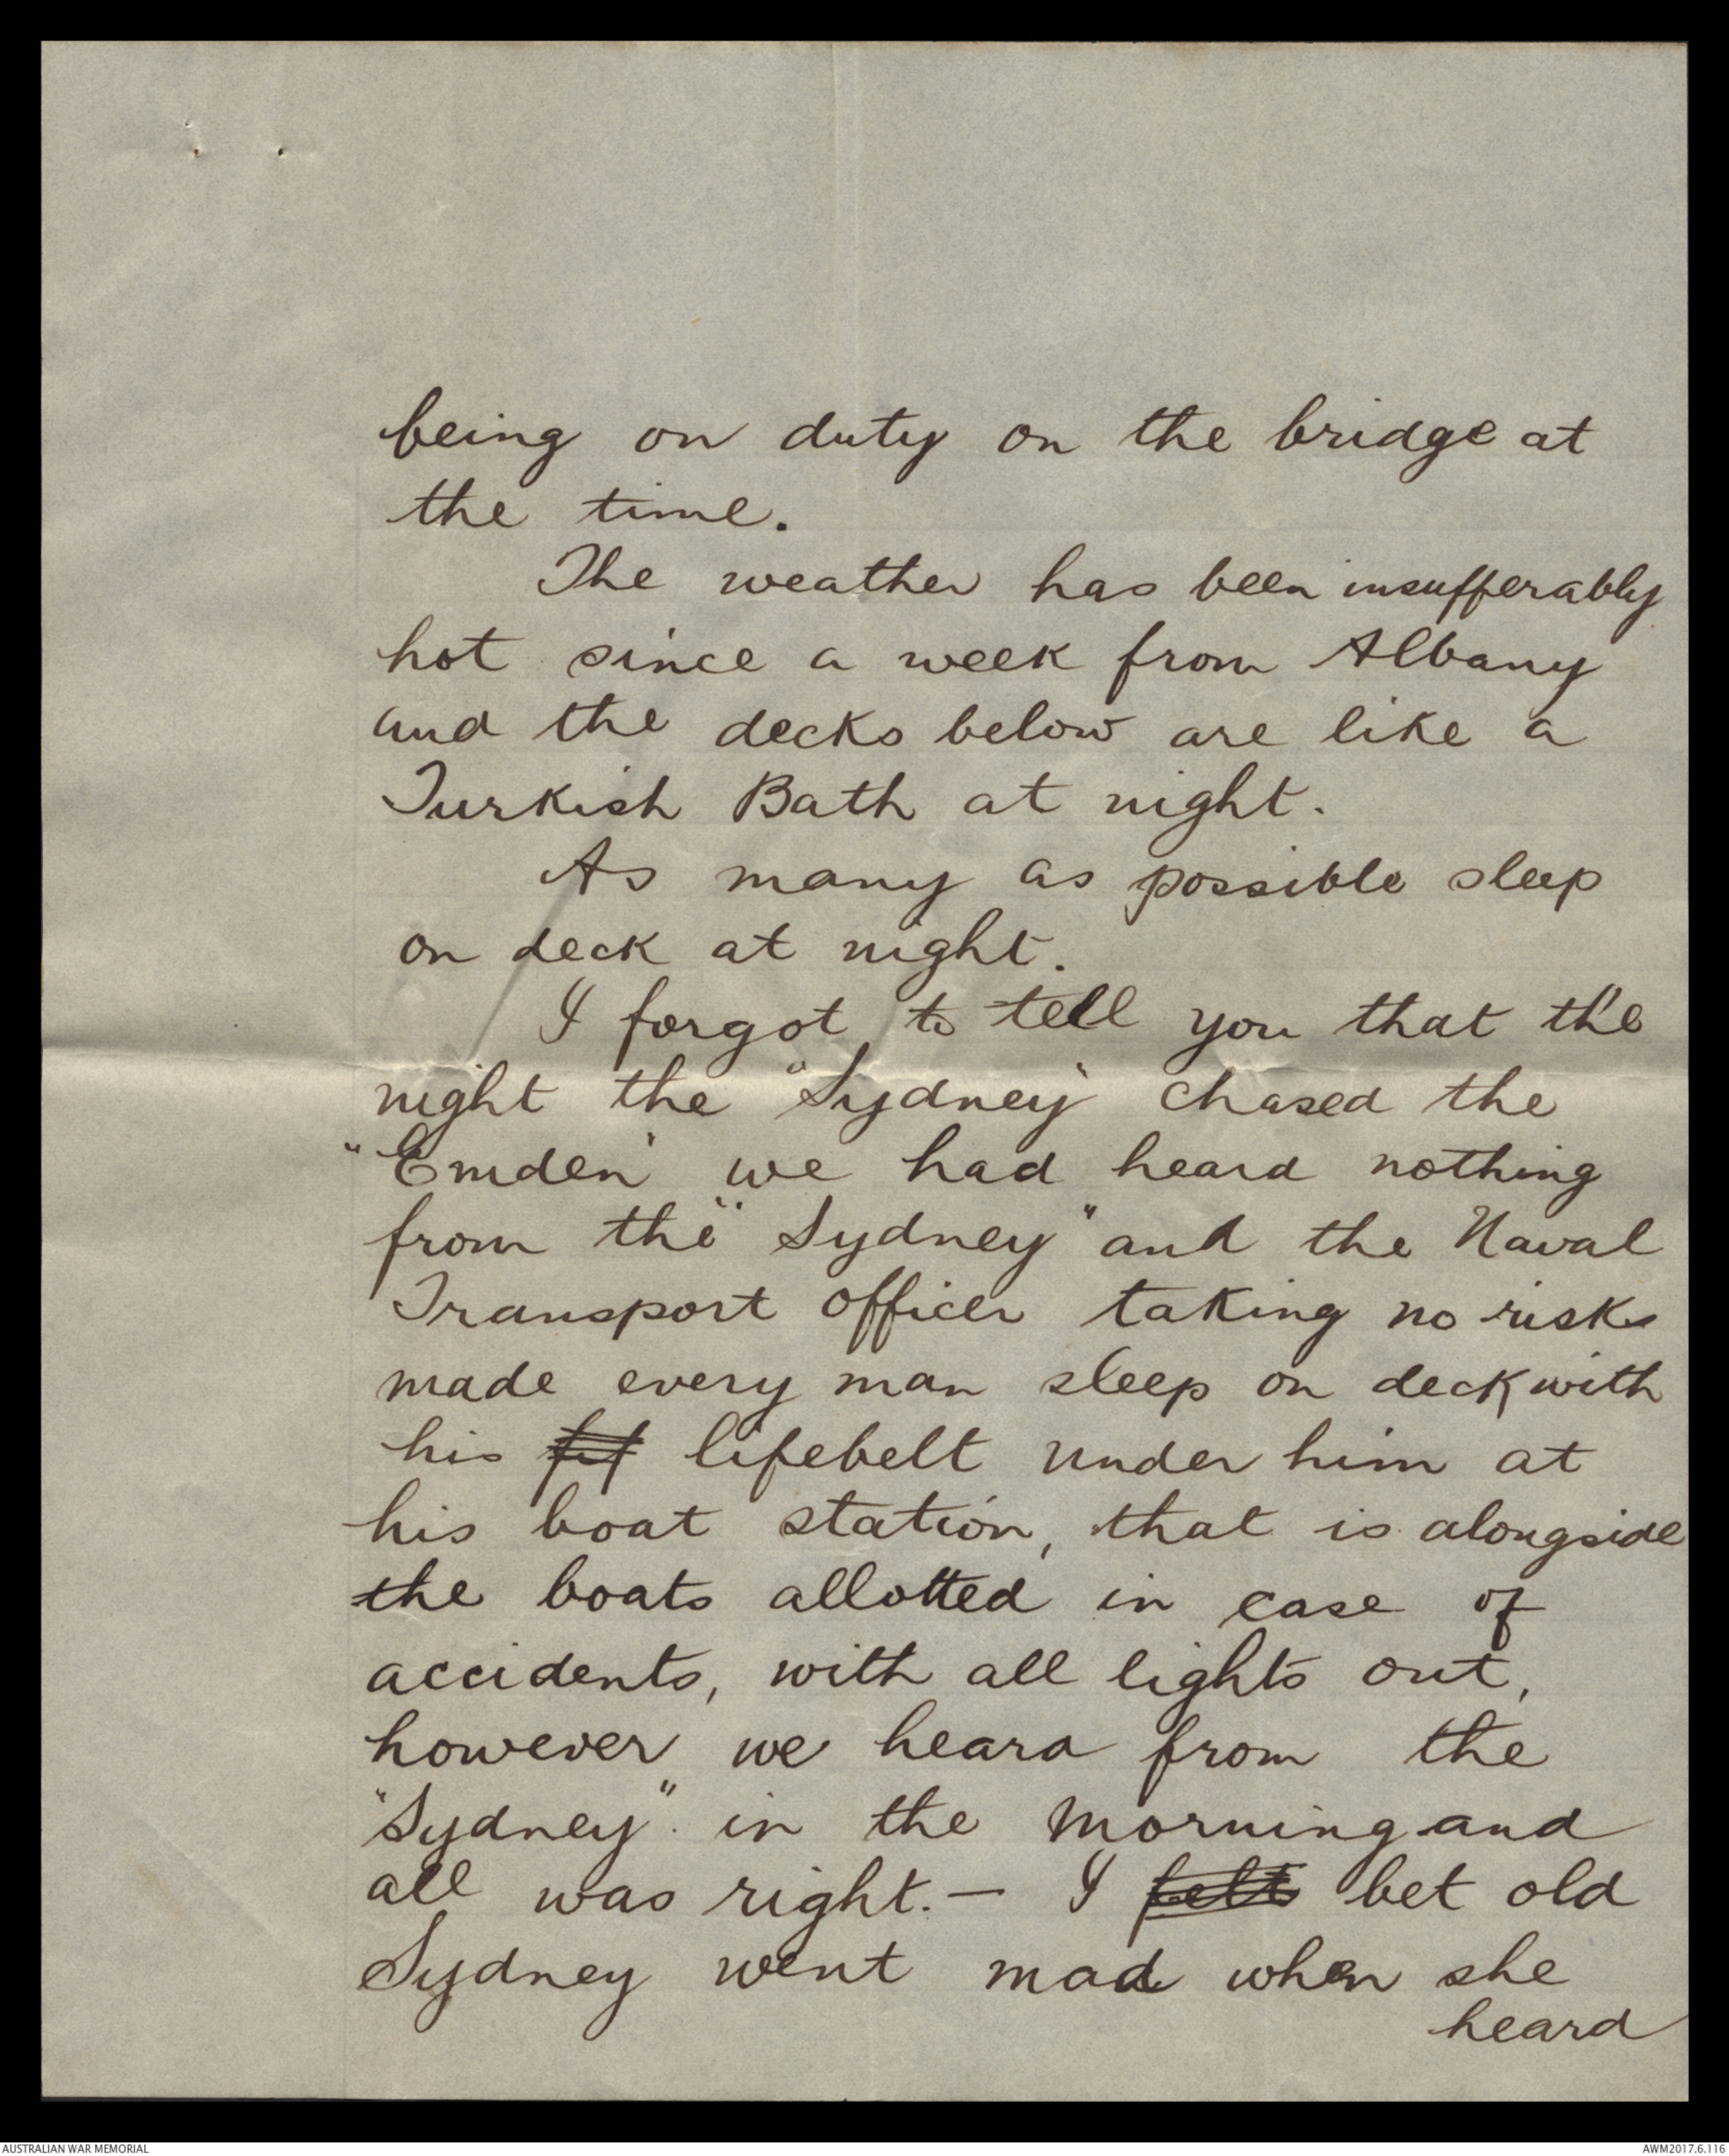 being on duty on the bridge at
the time.
The weather has been insufferably
hot since a week from Albany
and the decks below are like a
Turkish Bath at night.
As many as possible sleep
on deck at night.
I forgot to tell you that the
night the "Sydney" chased the
"Emden" we had heard nothing
from the "Sydney" and the Naval
Transport Officer taking no risks
made every man sleep on deck with
his lifebelt under him at
his boat station, that is alongside
the boats allotted in case of
accidents, with all lights out,
however we heard from the
"Sydney" in the morning and
all was right. — I felt bet old
Sydney went mad when she
heard
AUSTRALIAN WAR MEMORIAL
AWM2017.6.116